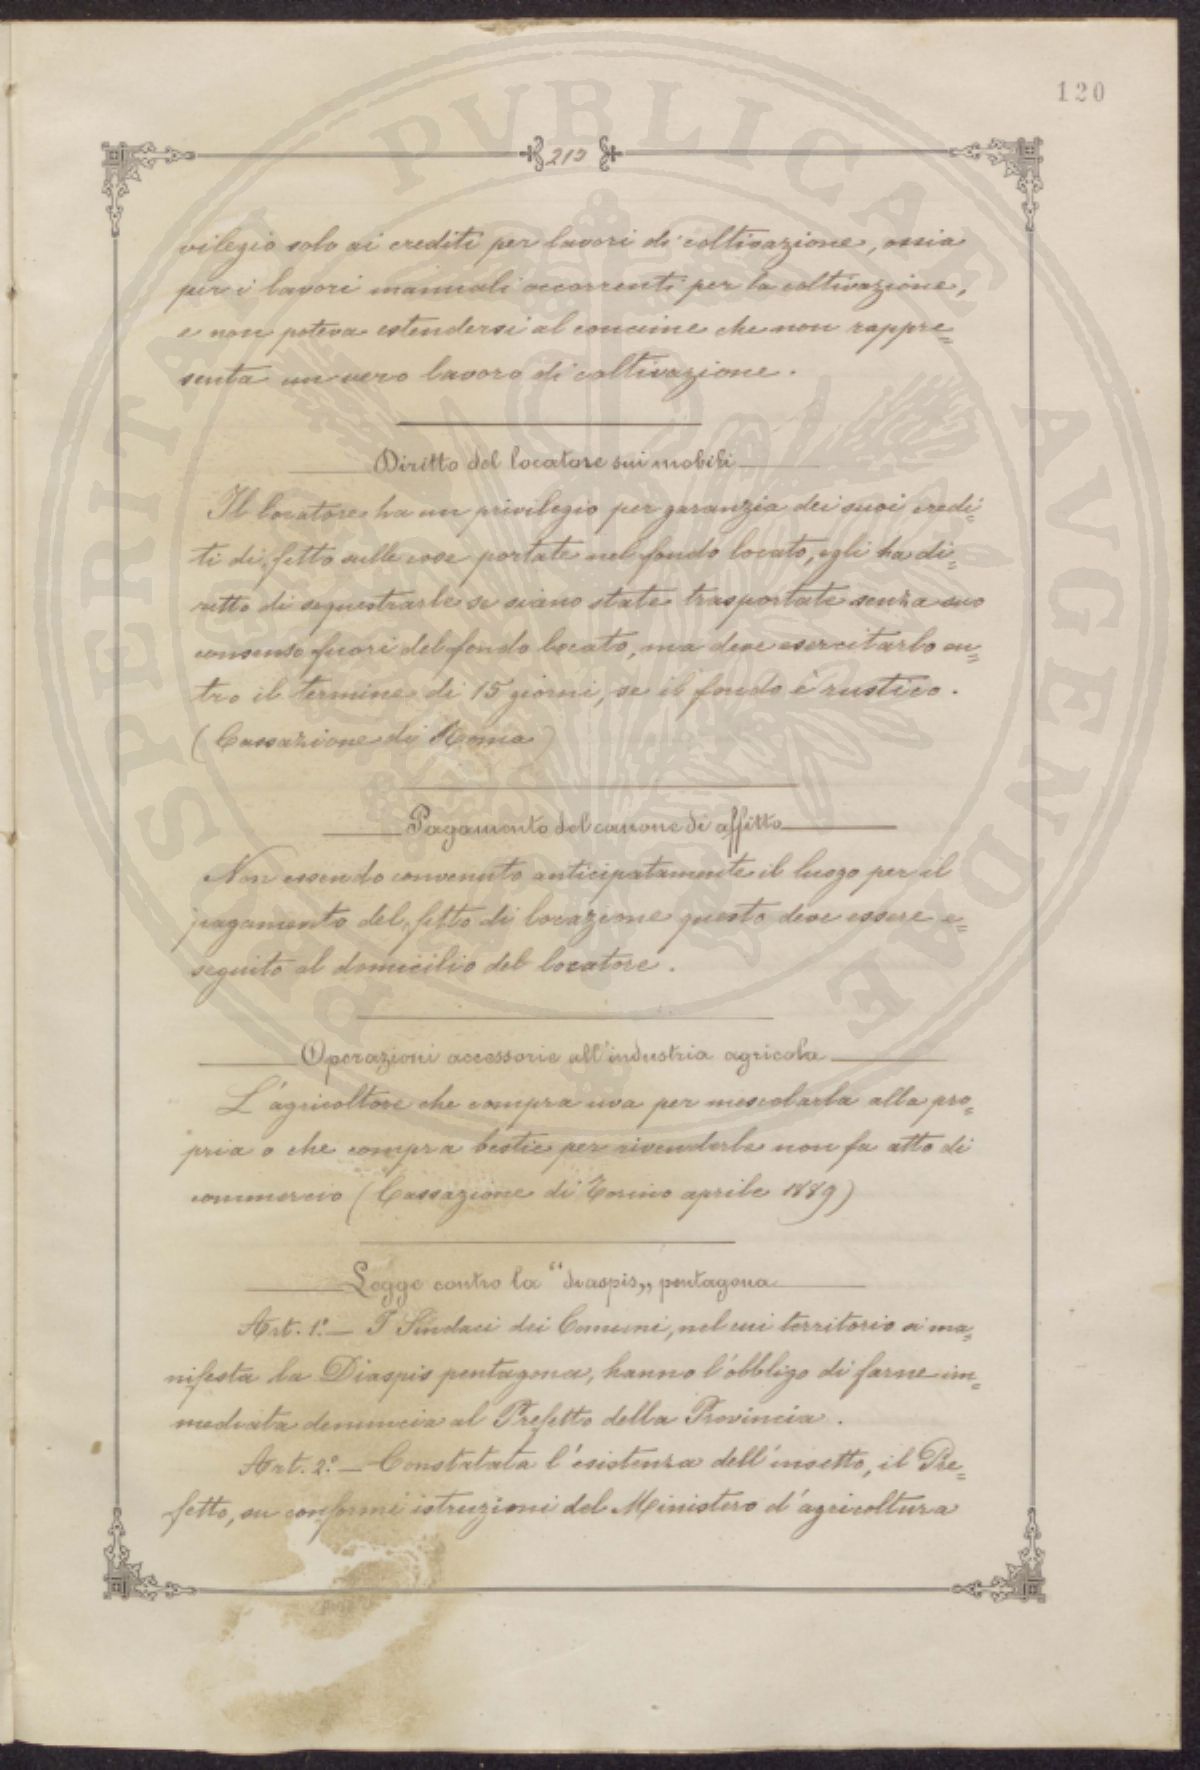 120
213
vilegio solo ai crediti per lavori di coltivazione, ossia
per i lavori manuali occorrenti per la coltivazione,
e non poteva estendersi al concime che non rappre=
senta un vero lavoro di coltivazione.
Diritto del locatore sui mobili
Il locatore ha un privilegio per garanzia dei suoi credi=
ti di fitto sulle cose portate nel fondo locato, egli ha di=
ritto di sequestrarle se siano state trasportate senza suo
consenso fuori del fondo locato, ma deve esercitarlo en=
tro il termine di 15 giorni, se il fondo è rustico.
(Cassazione di Roma)
Pagamento del canone di affitto
Non essendo convenuto anticipatamente il luogo per il
pagamento del fitto di locazione questo deve essere e=
seguito al domicilio del locatore.
Operazioni accessorie all'industria agricola
L'agricoltore che compra uva per mescolarla alla pro=
pria o che compra bestie per rivenderle non fa atto di
commercio (Cassazione di Torino aprile 1889)
Legge contro la "diaspis„ pentagona
Art. 1º.— I Sindaci dei Comuni, nel cui territorio si ma=
nifesta la Diaspis pentagona, hanno l'obbligo di farne im=
mediata denuncia al Prefetto della Provincia.
Art. 2º.— Constatata l'esistenza dell'insetto, il Pre=
fetto, su conformi istruzioni del Ministero d'agricoltura
PROSPERITATI PVBLICAE AVGENDAE